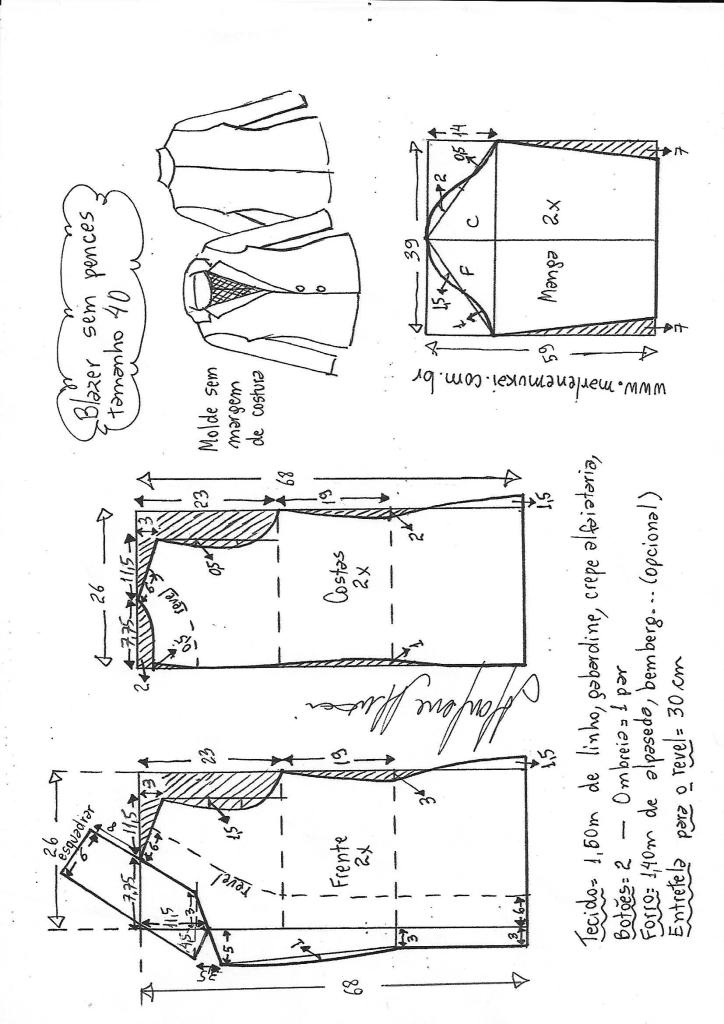 Blazer sem pences
tamanho 40
Molde sem
margem
de costura
39
14
0,5
2
C
F
1,5
1
Manga
2x
59
7
7
www.marlenemukai.com.br
26
7,75
11,5
3
23
19
68
2
0,5
6
revel
0,5
Costas
2x
2
1
1,5
26
7,75
11,5
3
23
19
esquadrar
6
8
6
11,5
3
4,5
5
1
1,5
revel
Frente
2x
3
3
3
6
1,5
68
Tecido= 1,60m de linho, gabardine, crepe alfaiataria,
Botões= 2 — Ombreia= 1 par
Forro= 1,40m de alpaseda, bemberg... (opcional)
Entretela para o revel= 30 cm